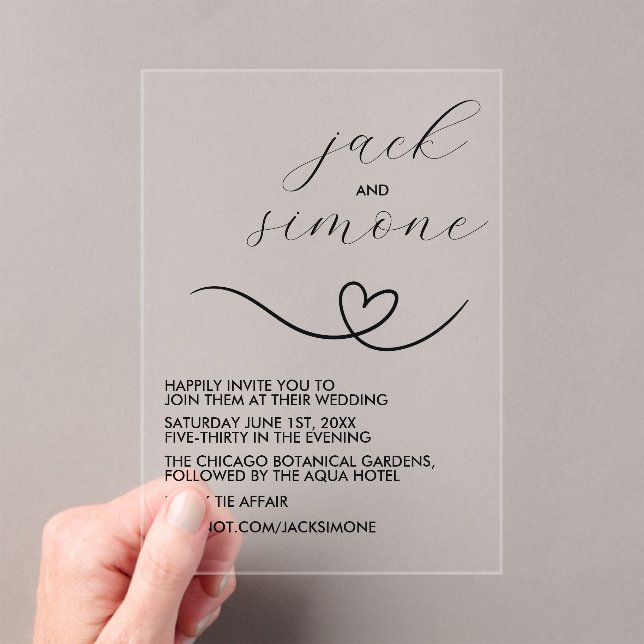 jack
AND
simone
HAPPILY INVITE YOU TO
JOIN THEM AT THEIR WEDDING
SATURDAY JUNE 1ST, 20XX
FIVE-THIRTY IN THE EVENING
THE CHICAGO BOTANICAL GARDENS,
FOLLOWED BY THE AQUA HOTEL
TIE AFFAIR